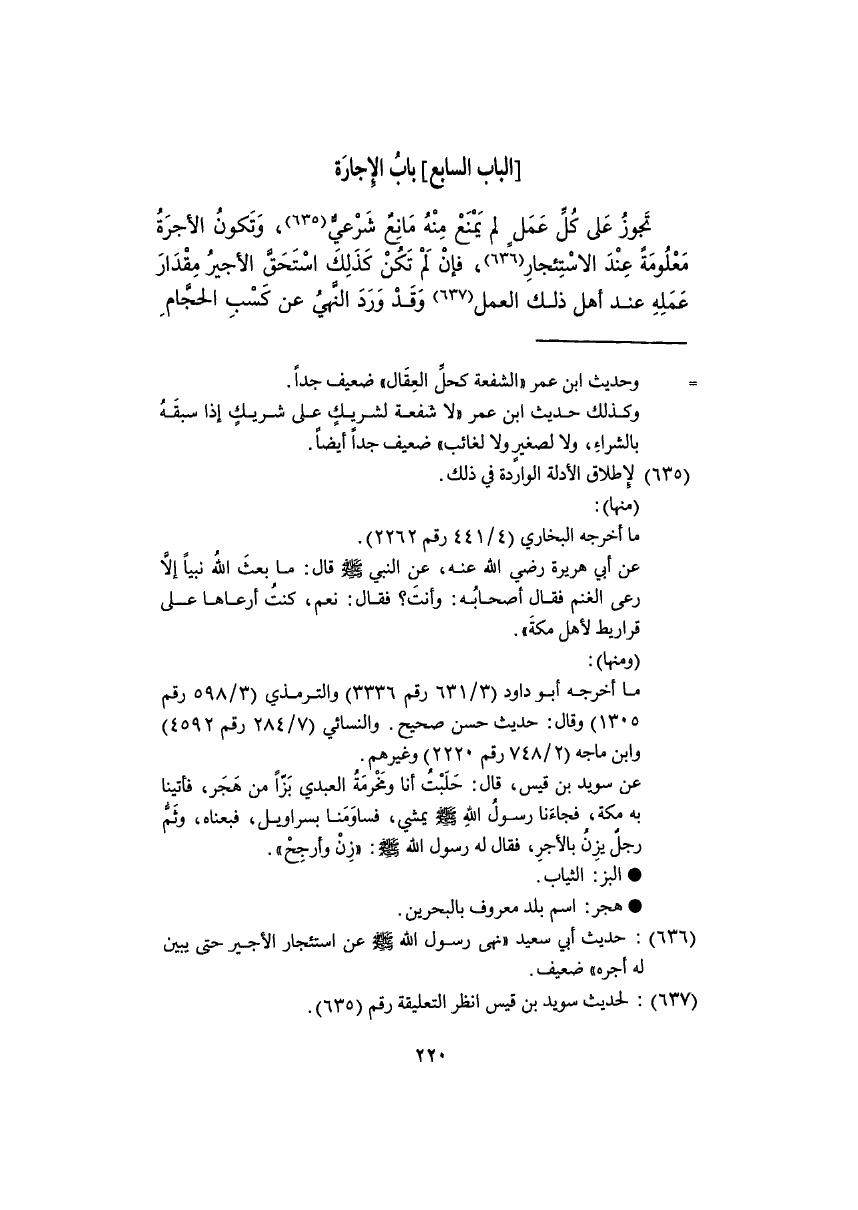 [الباب السابع] بابُ الإِجارَة
تَجوزُ عَلى كُلِّ عَمَلٍ لم يَمْنَعْ مِنْهُ مَانِعٌ شَرْعيٌّ(٦٣٥)، وَتَكونُ الأجرَةُ
مَعْلُومَةً عِنْدَ الاسْتِئجارِ(٦٣٦)، فإنْ لَمْ تَكُنْ كَذَلِكَ اسْتَحَقَّ الأجيرُ مِقْدَارَ
عَمَلِهِ عند أهل ذلك العمل(٦٣٧) وَقَدْ وَرَدَ النَّهيُ عن كَسْبِ الحَجَّامِ
= وحديث ابن عمر «الشفعة كحلِّ العِقَال» ضعيف جداً.
وكذلك حديث ابن عمر «لا شفعة لشريكٍ على شريكٍ إذا سبقَهُ
بالشراءِ، ولا لصغيرٍ ولا لغائب» ضعيف جداً أيضاً.
(٦٣٥) لإطلاق الأدلة الواردة في ذلك.
(منها):
ما أخرجه البخاري (٤/ ٤٤١ رقم ٢٢٦٢).
عن أبي هريرة رضي الله عنه، عن النبي ﷺ قال: ما بعثَ اللهُ نبياً إلَّا
رعى الغنم فقال أصحابُه: وأنتَ؟ فقال: نعم، كنتُ أرعاها على
قراريط لأهل مكةَ».
(ومنها):
ما أخرجه أبو داود (٣/ ٦٣١ رقم ٣٣٣٦) والترمذي (٣/ ٥٩٨ رقم
١٣٠٥) وقال: حديث حسن صحيح. والنسائي (٧/ ٢٨٤ رقم ٤٥٩٢)
وابن ماجه (٢/ ٧٤٨ رقم ٢٢٢٠) وغيرهم.
عن سويد بن قيس، قال: حَلَبْتُ أنا ومَخْرمَةُ العبدي بَزّاً من هَجَر، فأتينا
به مكة، فجاءَنا رسولُ اللهِ ﷺ يمشي، فساوَمَنا بسراويل، فبعناه، وثَمَّ
رجلٌ يزِنُ بالأجرِ، فقال له رسول الله ﷺ: «زِنْ وأرجِحْ».
● البز: الثياب.
● هجر: اسم بلد معروف بالبحرين.
(٦٣٦) : حديث أبي سعيد «نهى رسول الله ﷺ عن استئجار الأجير حتى يبين
له أجره» ضعيف.
(٦٣٧) : لحديث سويد بن قيس انظر التعليقة رقم (٦٣٥).
٢٢٠